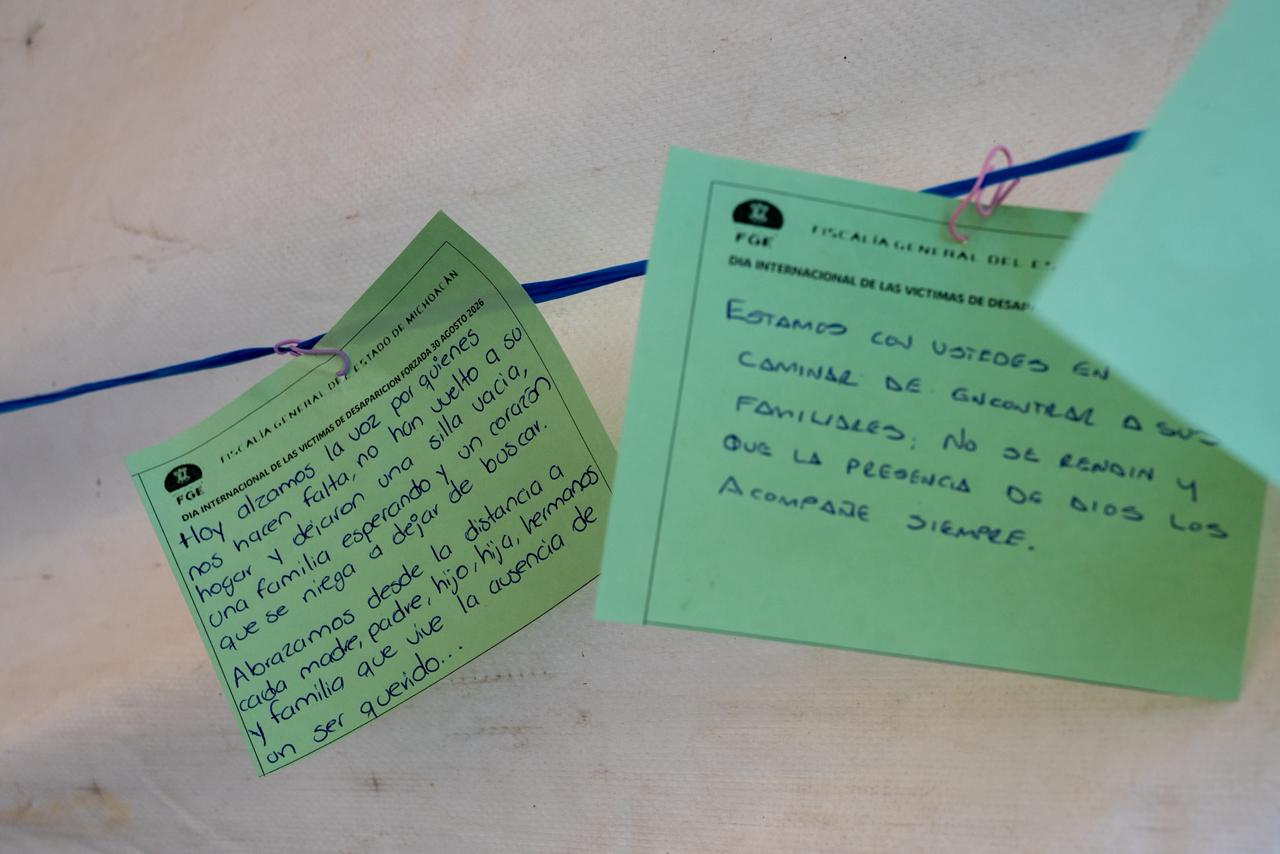 FGE
FISCALÍA GENERAL DEL ESTADO DE MICHOACÁN
DIA INTERNACIONAL DE LAS VICTIMAS DE DESAPARICION FORZADA 30 AGOSTO 2026
Hoy alzamos la voz por quienes
nos hacen falta, no han vuelto a su
hogar y dejaron una silla vacía,
una familia esperando y un corazón
que se niega a dejar de buscar.
Abrazamos desde la distancia a
cada madre, padre, hijo, hija, hermanos
y familia que vive la ausencia de
un ser querido...
FGE
FISCALÍA GENERAL DEL ES
DIA INTERNACIONAL DE LAS VICTIMAS DE DESAP
ESTAMOS CON USTEDES EN
CAMINAR DE ENCONTRAR A SUS
FAMILIARES; NO SE RENDIN Y
QUE LA PRESENCIA DE DIOS LOS
ACOMPAÑE SIEMPRE.